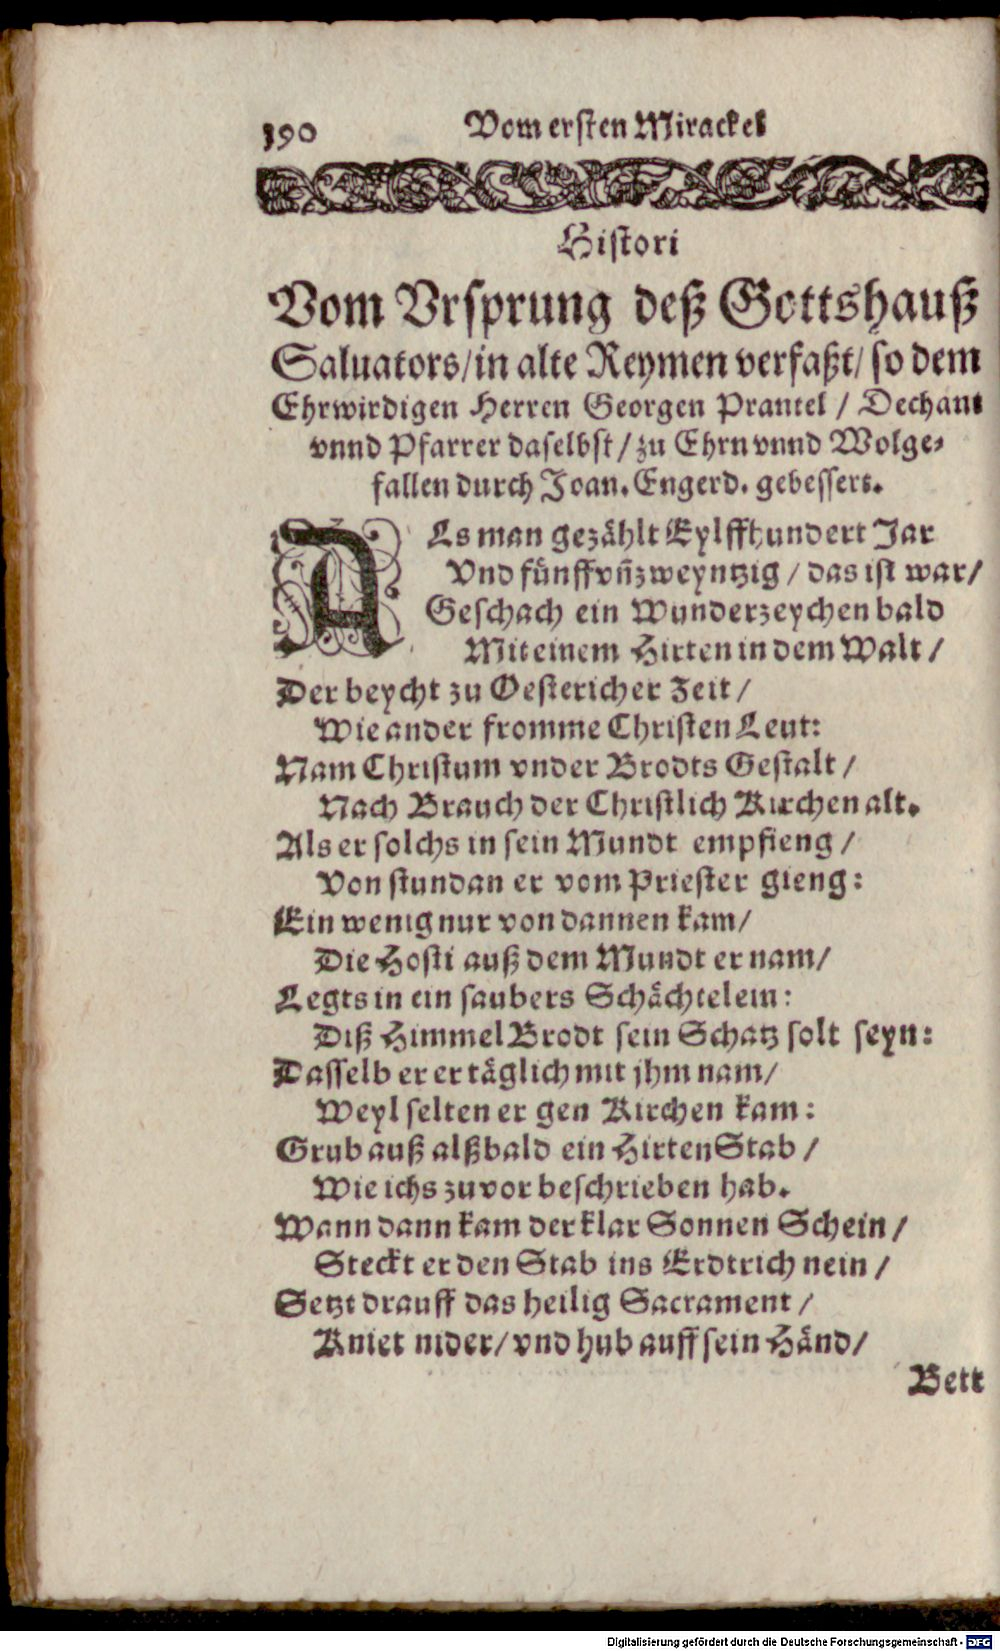 190 Vom ersten Mirackel
Histori
Vom Vrsprung deß Gottshauß
Saluators/in alte Reymen verfaßt/ so dem
Ehrwirdigen Herren Georgen Prantel / Dechant
vnnd Pfarrer daselbst / zu Ehrn vnnd Wolge-
fallen durch Joan. Engerd. gebessert.
ALs man gezählt Eylffhundert Jar
Vnd fünff vñ zweyntzig / das ist war/
Geschach ein Wunderzeychen bald
Mit einem Hirten in dem Walt /
Der beycht zu Oestericher Zeit /
Wie ander fromme Christen Leut:
Nam Christum vnder Brodts Gestalt /
Nach Brauch der Christlich Kirchen alt.
Als er solchs in sein Mundt empfieng /
Von stundan er vom Priester gieng:
Ein wenig nur von dannen kam/
Die Hosti auß dem Mundt er nam/
Legts in ein saubers Schächtelein:
Diß Himmel Brodt sein Schatz solt seyn:
Dasselb er er täglich mit jhm nam/
Weyl selten er gen Kirchen kam:
Grub auß alßbald ein Hirten Stab /
Wie ichs zuvor beschrieben hab.
Wann dann kam der klar Sonnen Schein /
Steckt er den Stab ins Erdtrich nein /
Setzt drauff das heilig Sacrament /
Kniet nider/ vnd hub auff sein Händ/
Bett
Digitalisierung gefördert durch die Deutsche Forschungsgemeinschaft - DFG